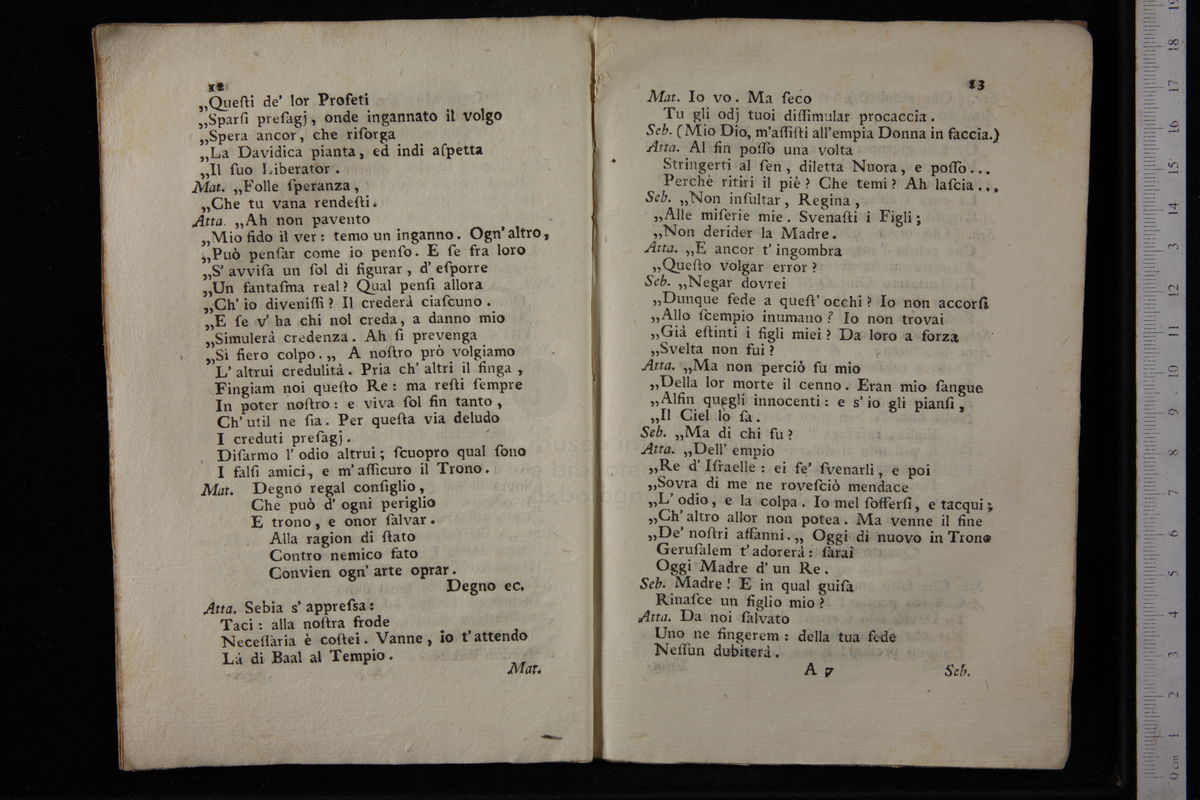 12
„Queſti de' lor Profeti
„Sparſi preſagj, onde ingannato il volgo
„Spera ancor, che riſorga
„La Davidica pianta, ed indi aſpetta
„Il ſuo Liberator.
Mat. „Folle ſperanza,
„Che tu vana rendeſti.
Atta. „Ah non pavento
„Mio fido il ver: temo un inganno. Ogn' altro,
„Può penſar come io penſo. E ſe fra loro
„S' avviſa un ſol di figurar, d' eſporre
„Un fantaſma real? Qual penſi allora
„Ch' io diveniſſi? Il crederà ciaſcuno.
„E ſe v' ha chi nol creda, a danno mio
„Simulerà credenza. Ah ſi prevenga
„Sì fiero colpo.„ A noſtro prò volgiamo
L' altrui credulità. Pria ch' altri il finga,
Fingiam noi queſto Re: ma reſti ſempre
In poter noſtro: e viva ſol fin tanto,
Ch' util ne ſia. Per queſta via deludo
I creduti preſagj.
Diſarmo l' odio altrui; ſcuopro qual ſono
I falſi amici, e m' aſſicuro il Trono.
Mat. Degno regal conſiglio,
Che può d' ogni periglio
E trono, e onor ſalvar.
Alla ragion di ſtato
Contro nemico fato
Convien ogn' arte oprar.
Degno ec.
Atta. Sebia s' appreſsa:
Taci: alla noſtra frode
Neceſſaria è coſtei. Vanne, io t' attendo
Là di Baal al Tempio.
Mat.
13
Mat. Io vo. Ma ſeco
Tu gli odj tuoi diſſimular procaccia.
Seb. (Mio Dio, m'aſſiſti all'empia Donna in faccia.)
Atta. Al fin poſſo una volta
Stringerti al ſen, diletta Nuora, e poſſo...
Perchè ritiri il piè? Che temi? Ah laſcia...
Seb. „Non inſultar, Regina,
„Alle miſerie mie. Svenaſti i Figli;
„Non derider la Madre.
Atta. „E ancor t' ingombra
„Queſto volgar error?
Seb. „Negar dovrei
„Dunque fede a queſt' occhi? Io non accorſi
„Allo ſcempio inumano? Io non trovai
„Già eſtinti i figli miei? Da loro a forza
„Svelta non fui?
Atta. „Ma non perciò fu mio
„Della lor morte il cenno. Eran mio ſangue
„Alfin quegli innocenti: e s' io gli pianſi,
„Il Ciel lo ſa.
Seb. „Ma di chi fu?
Atta. „Dell' empio
„Re d' Iſraelle: ei fe' ſvenarli, e poi
„Sovra di me ne roveſciò mendace
„L' odio, e la colpa. Io mel ſofferſi, e tacqui;
„Ch' altro allor non potea. Ma venne il fine
„De' noſtri affanni.„ Oggi di nuovo in Trono
Geruſalem t' adorerà: ſarai
Oggi Madre d' un Re.
Seb. Madre! E in qual guiſa
Rinaſce un figlio mio?
Atta. Da noi ſalvato
Uno ne fingerem: della tua fede
Neſſun dubiterà.
A 7
Seb.